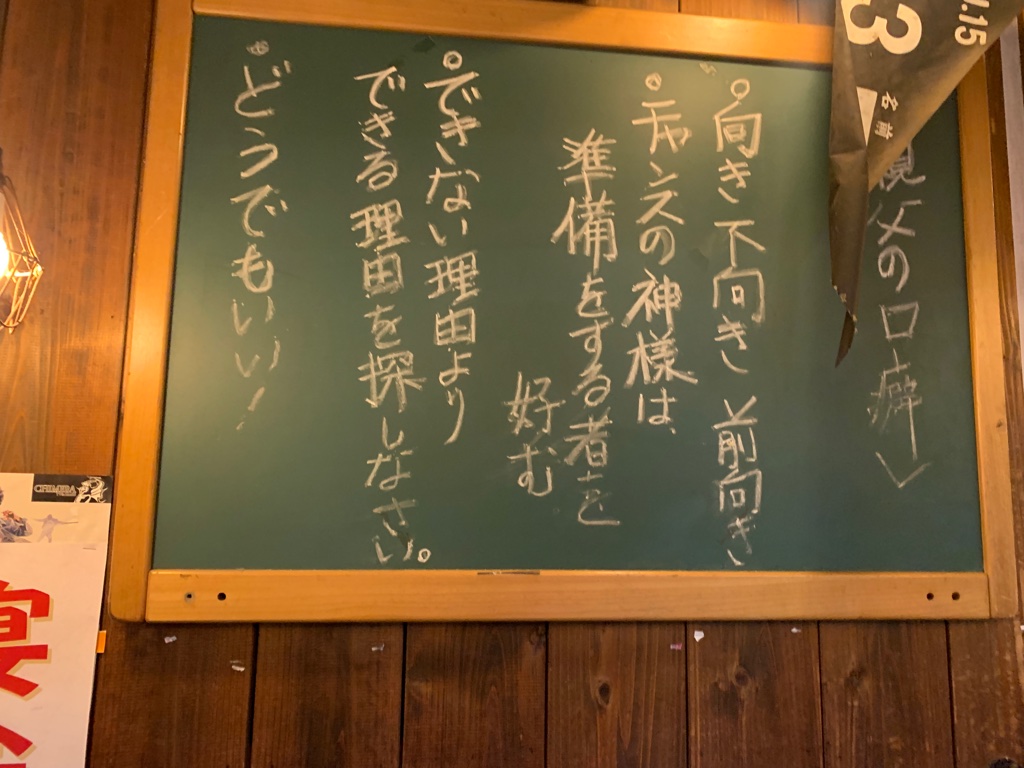 親父の口癖
向き不向き 前向き
チャンスの神様は、
準備をする者を
好む
できない理由より
できる理由を探しなさい。
どうでもいい!
1.15
3
名前
CHIMERA
宴会